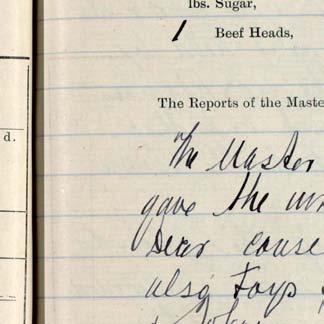 lbs. Sugar,
1 Beef Heads,
The Reports of the Maste
d.
The Master
gave the
Dear conse
also Toys